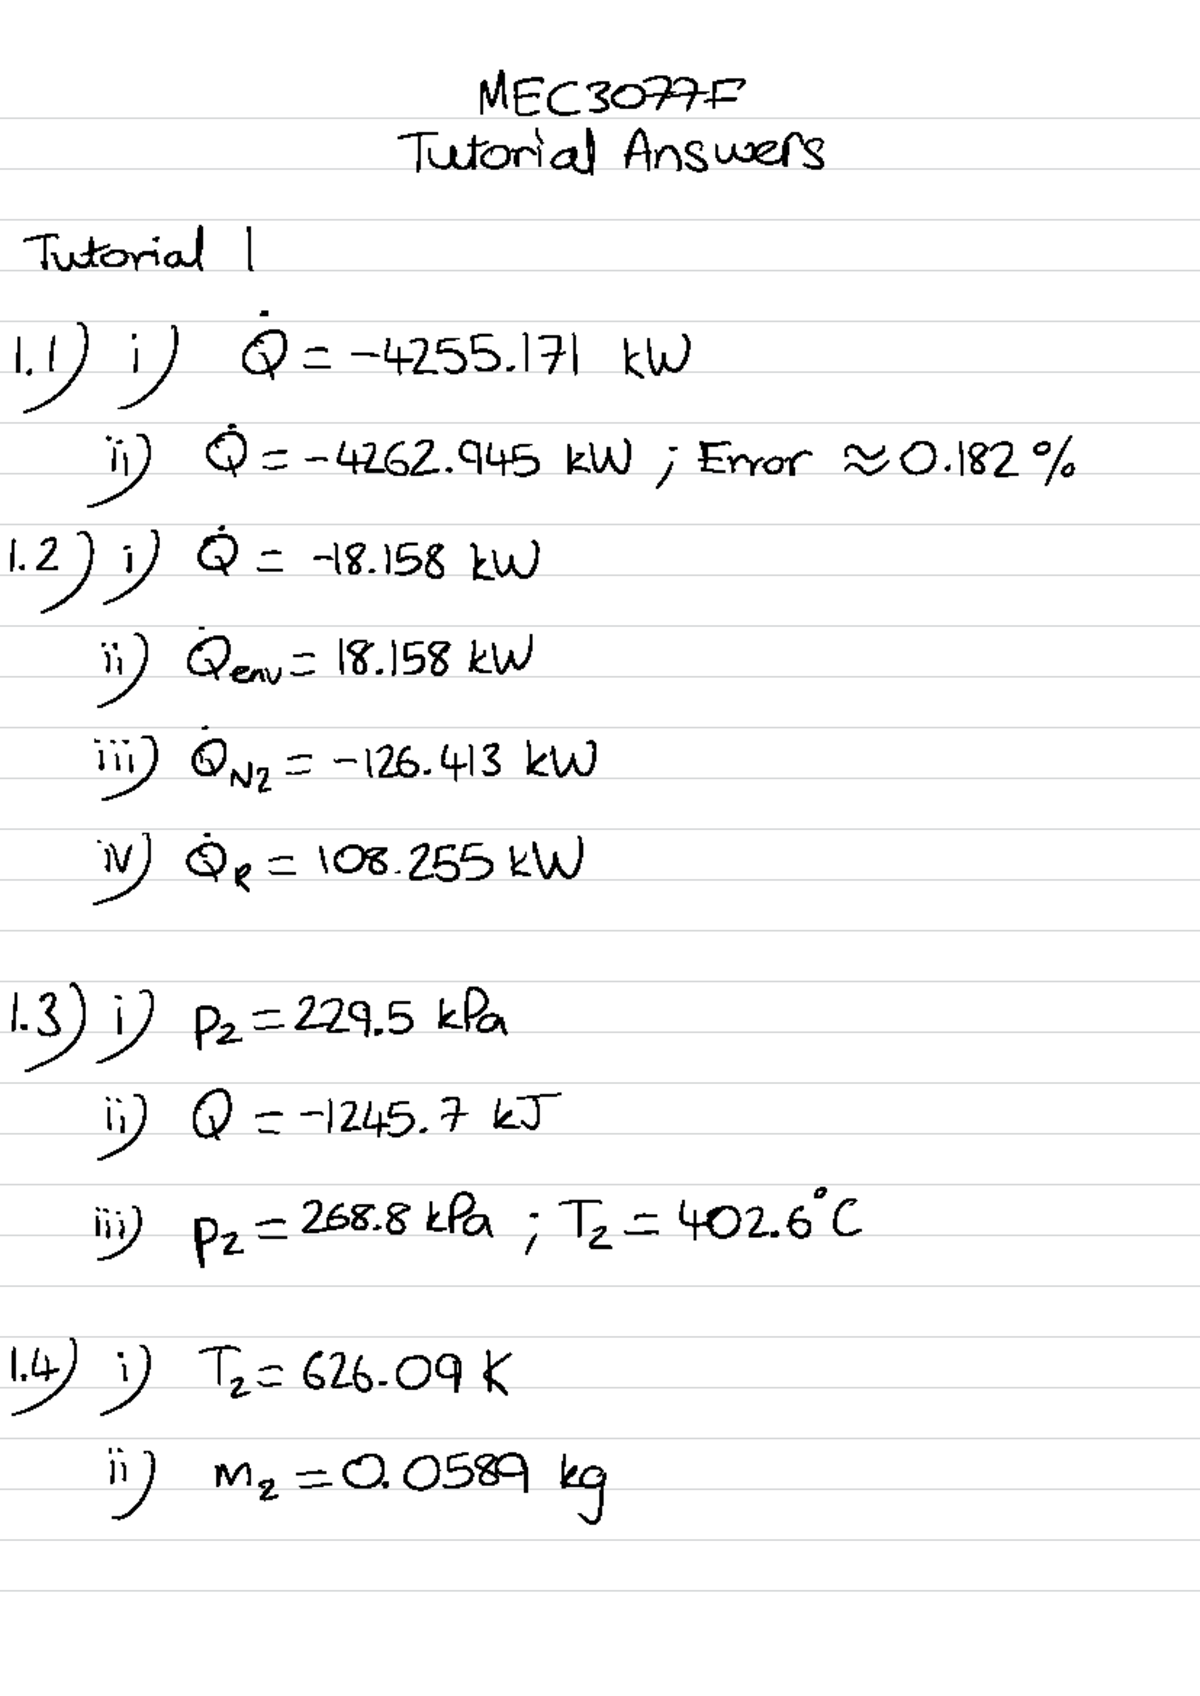 MEC3077F
Tutorial Answers
Tutorial 1
1.1) i) Q̇ = -4255.171 kW
ii) Q̇ = -4262.945 kW ; Error ≈ 0.182 %
1.2) i) Q̇ = -18.158 kW
ii) Q̇env = 18.158 kW
iii) Q̇N2 = -126.413 kW
iv) Q̇R = 108.255 kW
1.3) i) p2 = 229.5 kPa
ii) Q = -1245.7 kJ
iii) p2 = 268.8 kPa ; T2 = 402.6°C
1.4) i) T2 = 626.09 K
ii) m2 = 0.0589 kg